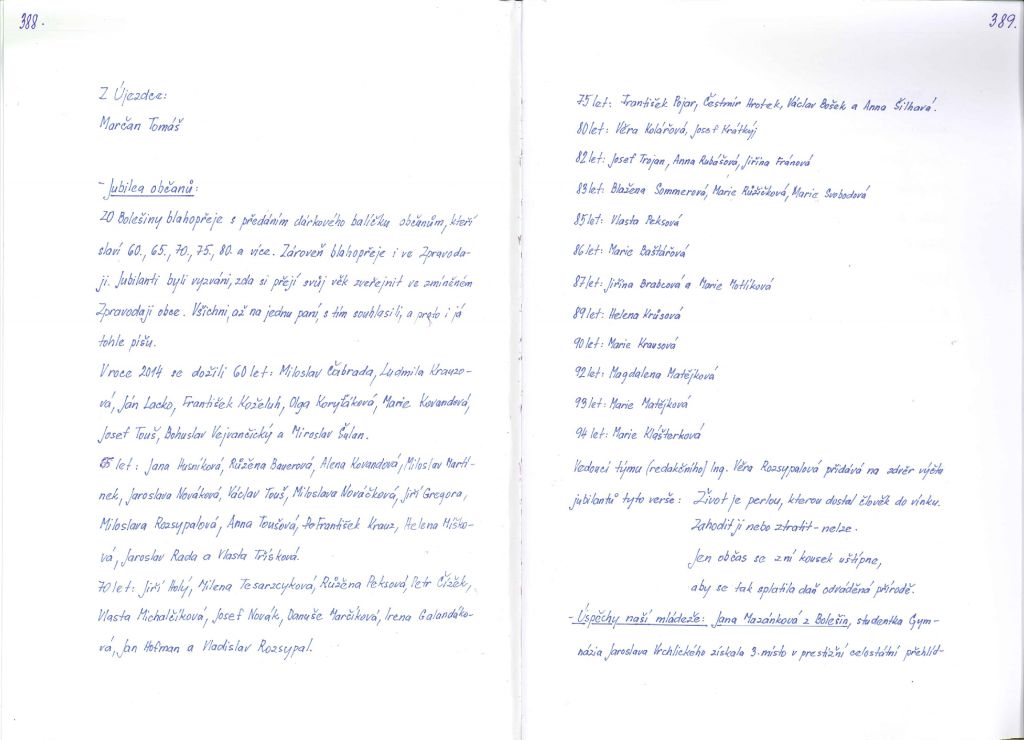 388.
Z Újezdce:
Marčan Tomáš
- Jubilea občanů:
ZO Bolešiny blahopřeje s předáním dárkového balíčku občanům, kteří
slaví 60., 65., 70., 75., 80. a více. Zároveň blahopřeje i ve Zpravoda-
ji. Jubilanti byli vyzváni, zda si přejí svůj věk zveřejnit ve zmíněném
Zpravodaji obce. Všichni, až na jednu paní, s tím souhlasili, a proto i já
tohle píšu.
V roce 2014 se dožili 60 let: Miloslav Čabrada, Ludmila Krauzo-
vá, Ján Lacko, František Koželuh, Olga Koryťáková, Marie Kovandová,
Josef Touš, Bohuslav Vejvančický a Miroslav Šulan.
65 let: Jana Husníková, Růžena Bauerová, Alena Kovandová, Miloslav Martí-
nek, Jaroslava Nováková, Václav Touš, Miloslava Nováčková, Jiří Gregora,
Miloslava Rozsypalová, Anna Toušová, František Krauz, Helena Míško-
vá, Jaroslav Rada a Vlasta Tříšková.
70 let: Jiří Holý, Milena Tesarzcyková, Růžena Peksová, Petr Čížek,
Vlasta Michalčíková, Josef Novák, Danuše Marčíková, Irena Galandáko-
vá, Jan Hofman a Vladislav Rozsypal.
389.
75 let: František Pojar, Čestmír Hrotek, Václav Bošek a Anna Šilhavá.
80 let: Věra Kolářová, Josef Krátký
82 let: Josef Trojan, Anna Rubášová, Jiřina Fránová
83 let: Blažena Sommerová, Marie Růžičková, Marie Svobodová
85 let: Vlasta Peksová
86 let: Marie Baštářová
87 let: Jiřina Brabcová a Marie Motlíková
89 let: Helena Krůsová
90 let: Marie Krausová
92 let: Magdalena Matějková
93 let: Marie Matějková
94 let: Marie Klášterková
Vedoucí týmu (redakčního) Ing. Věra Rozsypalová přidává na závěr výčtu
jubilantů tyto verše: Život je perlou, kterou dostal člověk do vínku.
Zahodit ji nebo ztratit - nelze.
Jen občas se z ní kousek uštípne,
aby se tak splatila daň odváděná přírodě.
- Úspěchy naší mládeže: Jana Mazánková z Bolešin, studentka Gym-
názia Jaroslava Vrchlického získala 3. místo v prestižní celostátní přehlíd-